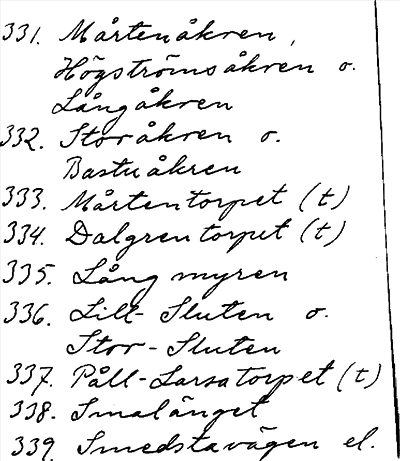 331. Mårtenåkren,
Högströmsåkren o.
Långåkren
332. Storåkren o.
Bastuåkren
333. Mårtentorpet (t)
334. Dalgrentorpet (t)
335. Långmyren
336. Lill-Sluten o.
Stor-Sluten
337. Påll-Larsatorpet (t)
338. Smalänget
339. Smedstavägen el.